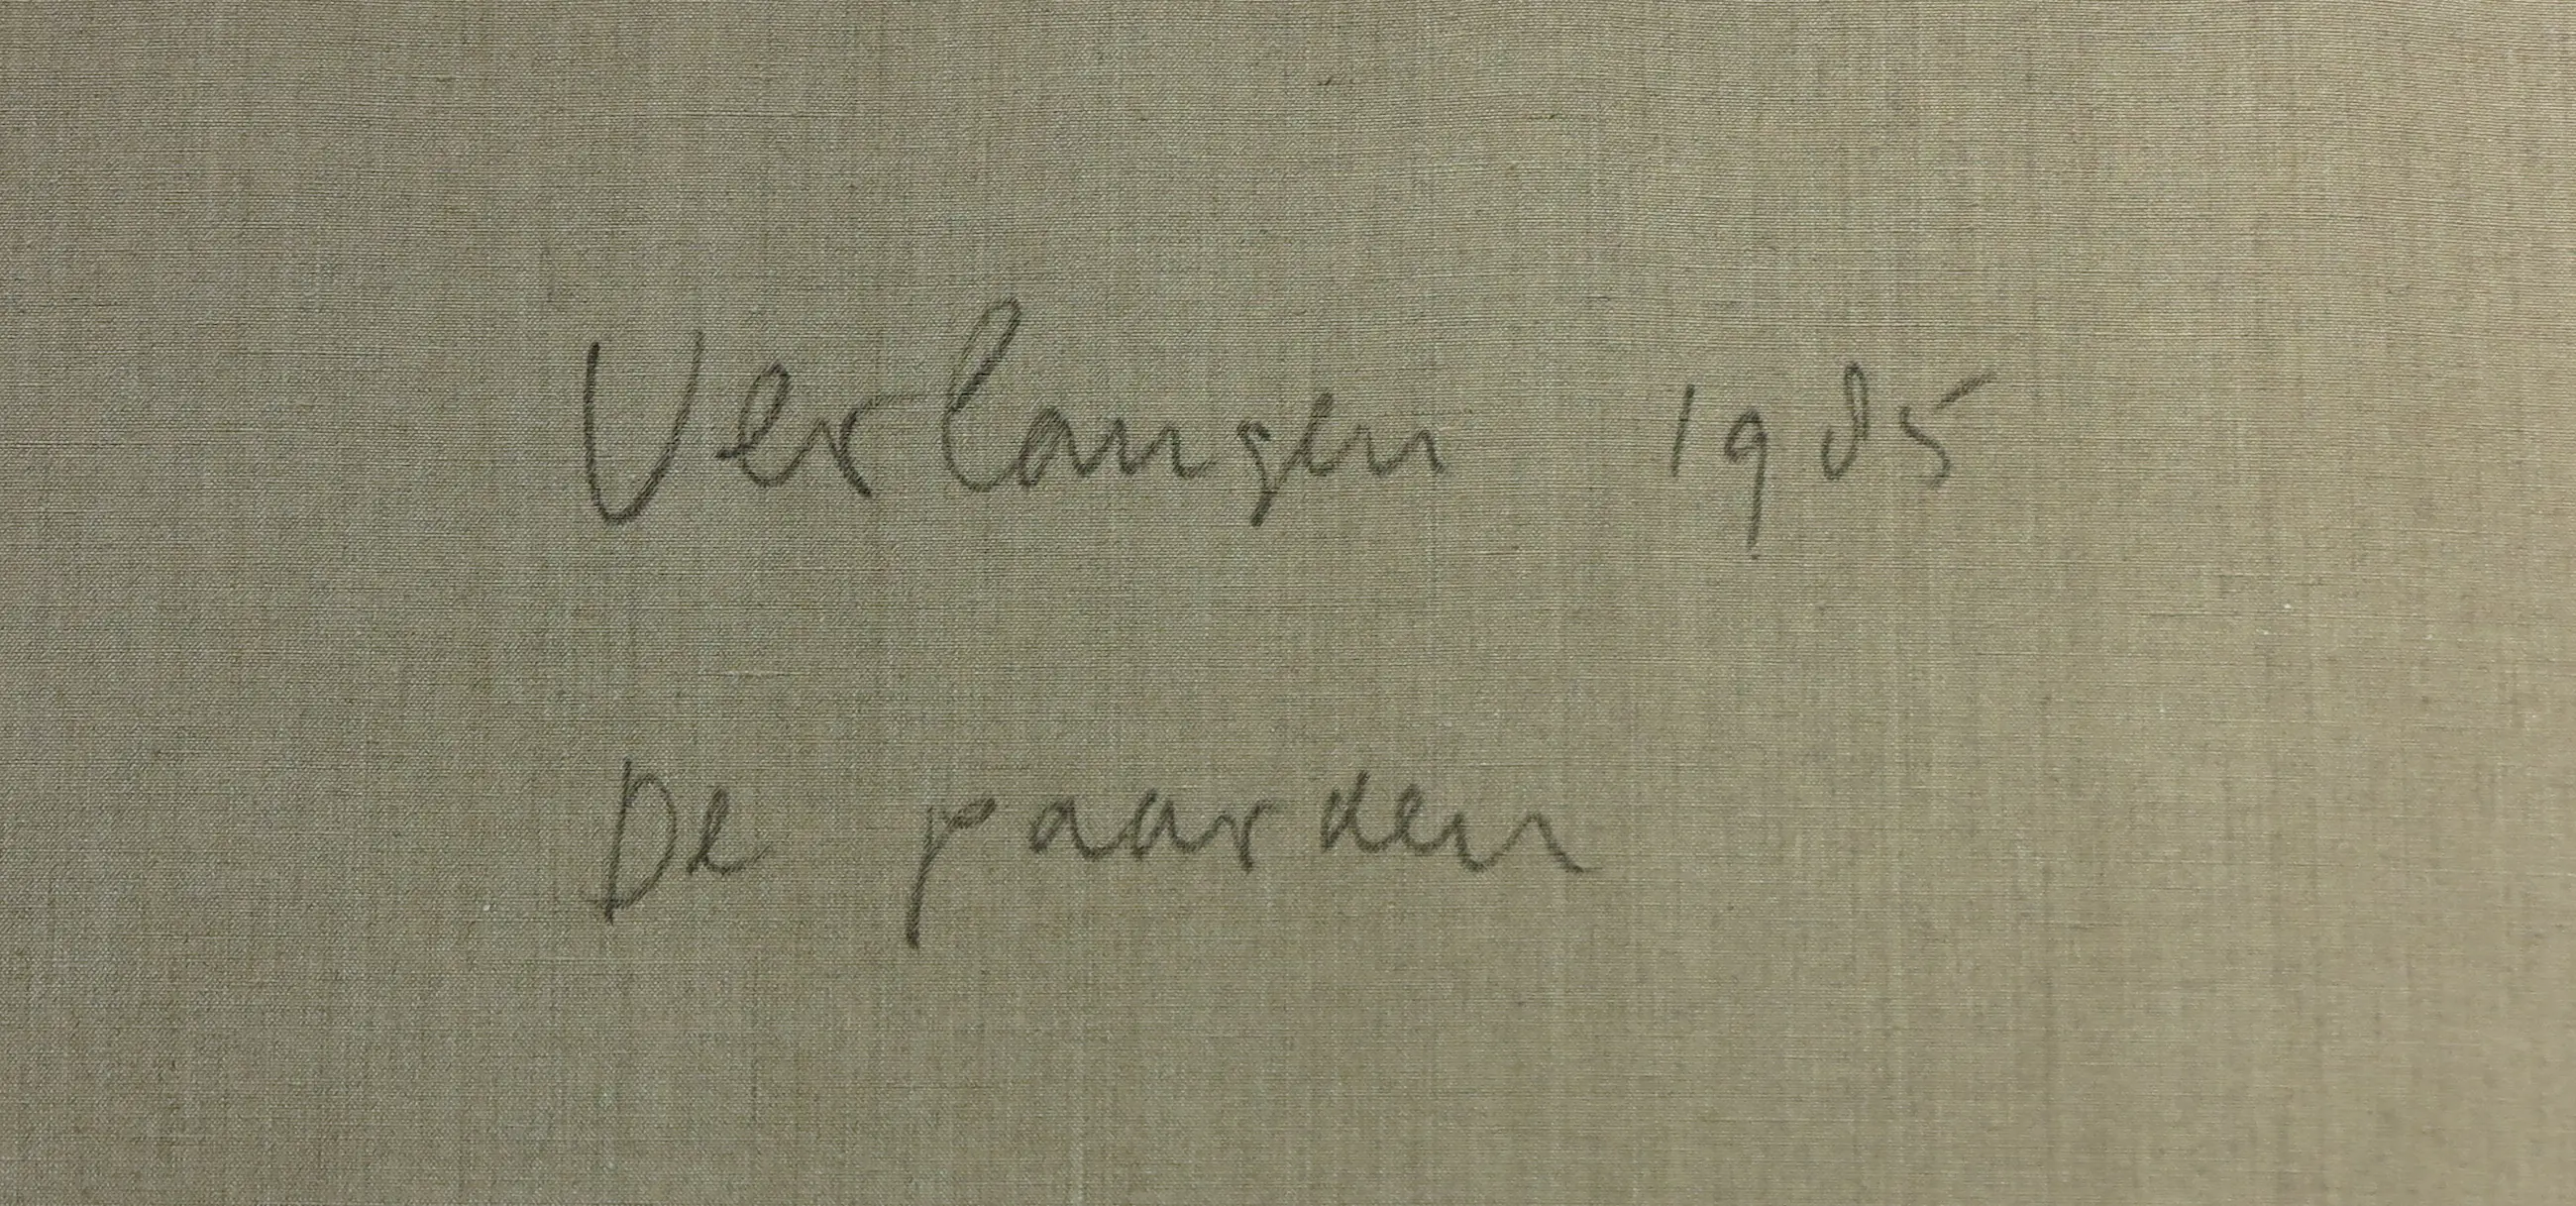 Verlangen 1985
De paarden